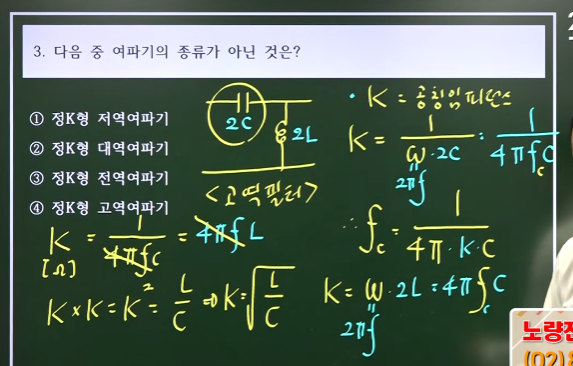 3. 다음 중 여파기의 종류가 아닌 것은?
① 정K형 저역여파기
② 정K형 대역여파기
③ 정K형 전역여파기
④ 정K형 고역여파기
2C
2L
<고역필터>
• K = 공칭임피던스
K = 1 / (ω·2C) = 1 / (4πf_cC)
2πf
∴ f_c = 1 / (4π·K·C)
K = 1 / (4πfC) = 4πfL
[Ω]
K×K = K² = L/C ⇒ K = √(L/C)
K = ω·2L = 4πf_cC
2πf
노량진
(02)8